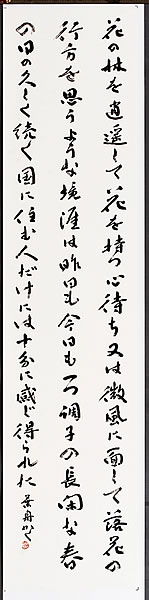 花の林を逍遥して花を持つ心待ち又は微風に面して落花の
行方を思うような境涯は昨日も今日も一つ調子の長閑な春
の日の久しく続く国に住む人だけには十分に感じ得られた